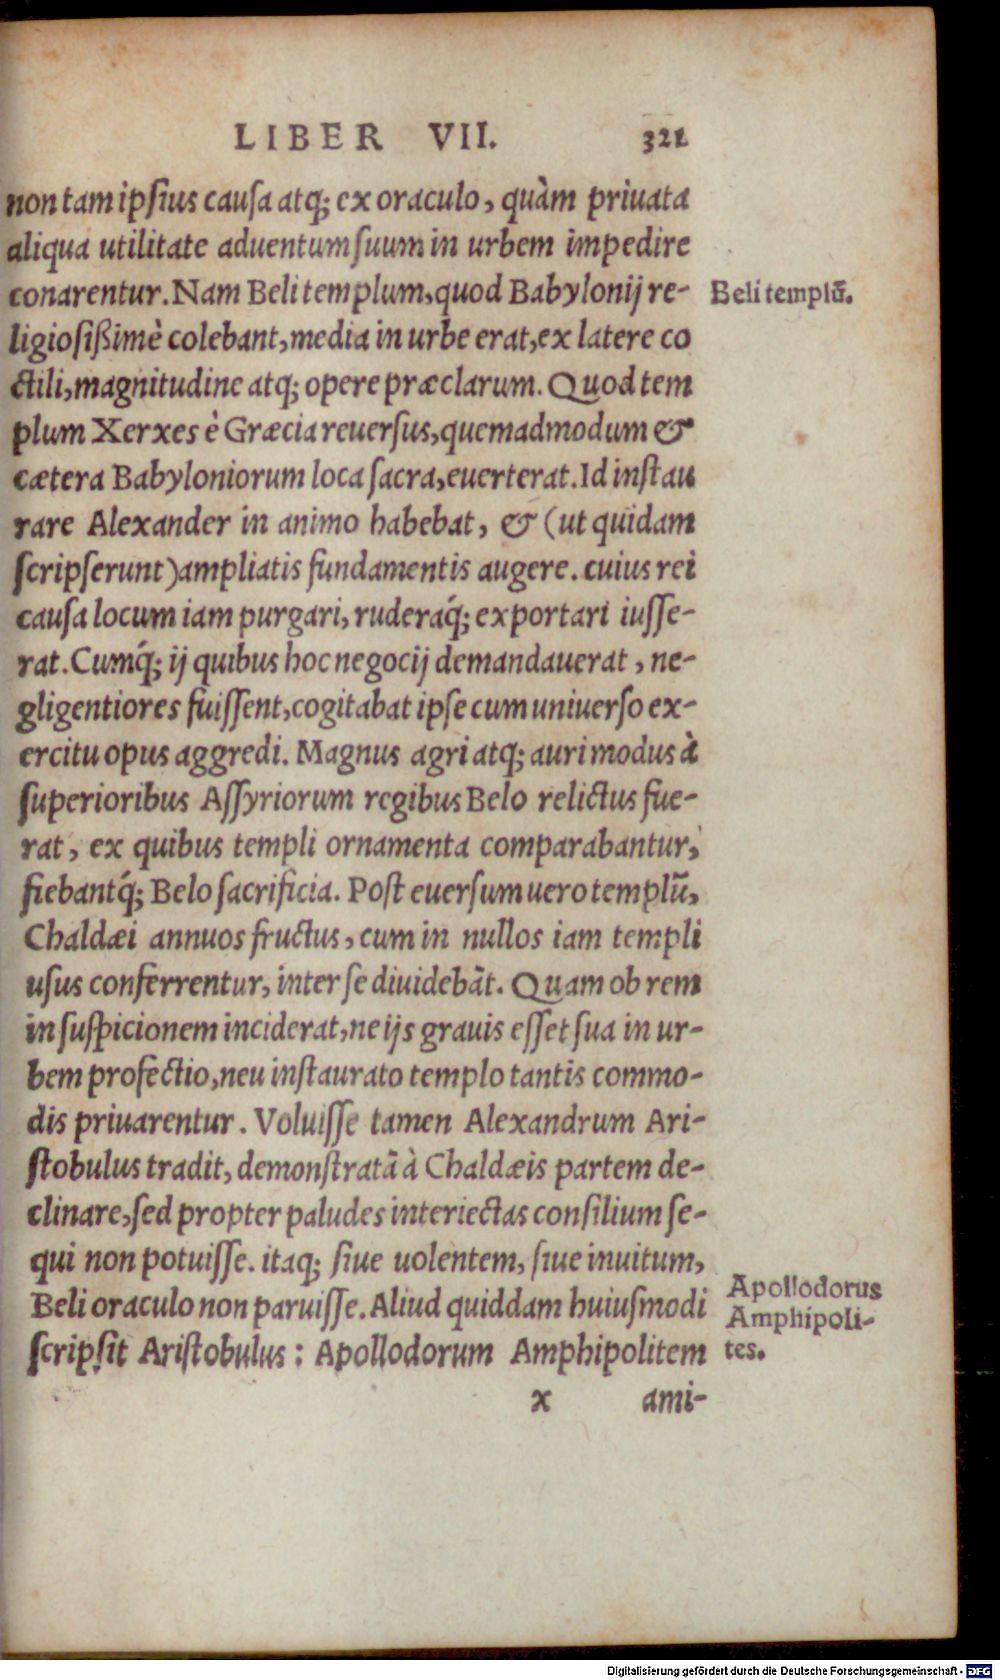 LIBER VII. 321
non tam ipſius cauſa atq; ex oraculo, quàm priuata
aliqua utilitate aduentum ſuum in urbem impedire
conarentur. Nam Beli templum, quod Babylonij re-
Beli templū.
ligioſißimè colebant, media in urbe erat, ex latere co
ctili, magnitudine atq; opere præclarum. Quod tem
plum Xerxes è Græcia reuerſus, quemadmodum &
cætera Babyloniorum loca ſacra, euerterat. Id inſtau
rare Alexander in animo habebat, & (ut quidam
ſcripſerunt) ampliatis fundamentis augere. cuius rei
cauſa locum iam purgari, ruderaq́; exportari iuſſe-
rat. Cumq́; ij quibus hoc negocij demandauerat, ne-
gligentiores fuiſſent, cogitabat ipſe cum uniuerſo ex-
ercitu opus aggredi. Magnus agri atq; auri modus à
ſuperioribus Aſſyriorum regibus Belo relictus fue-
rat, ex quibus templi ornamenta comparabantur,
fiebantq́; Belo ſacrificia. Poſt euerſum uero templū,
Chaldæi annuos fructus, cum in nullos iam templi
uſus conferrentur, inter ſe diuidebāt. Quam ob rem
in ſuſpicionem inciderat, ne ijs grauis eſſet ſua in ur-
bem profectio, neu inſtaurato templo tantis commo-
dis priuarentur. Voluiſſe tamen Alexandrum Ari-
ſtobulus tradit, demonſtratā à Chaldæis partem de-
clinare, ſed propter paludes interiectas conſilium ſe-
qui non potuiſſe. itaq; ſiue uolentem, ſiue inuitum,
Beli oraculo non paruiſſe. Aliud quiddam huiuſmodi
ſcripſit Ariſtobulus: Apollodorum Amphipolitem
Apollodorus
Amphipoli-
tes.
x ami-
Digitalisierung gefördert durch die Deutsche Forschungsgemeinschaft - DFG